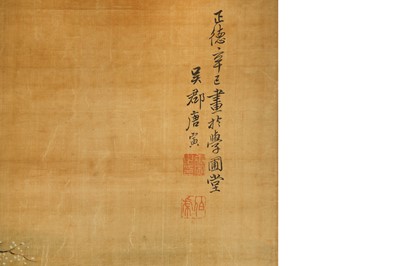 正德辛巳畫於學圃堂
吳郡唐寅